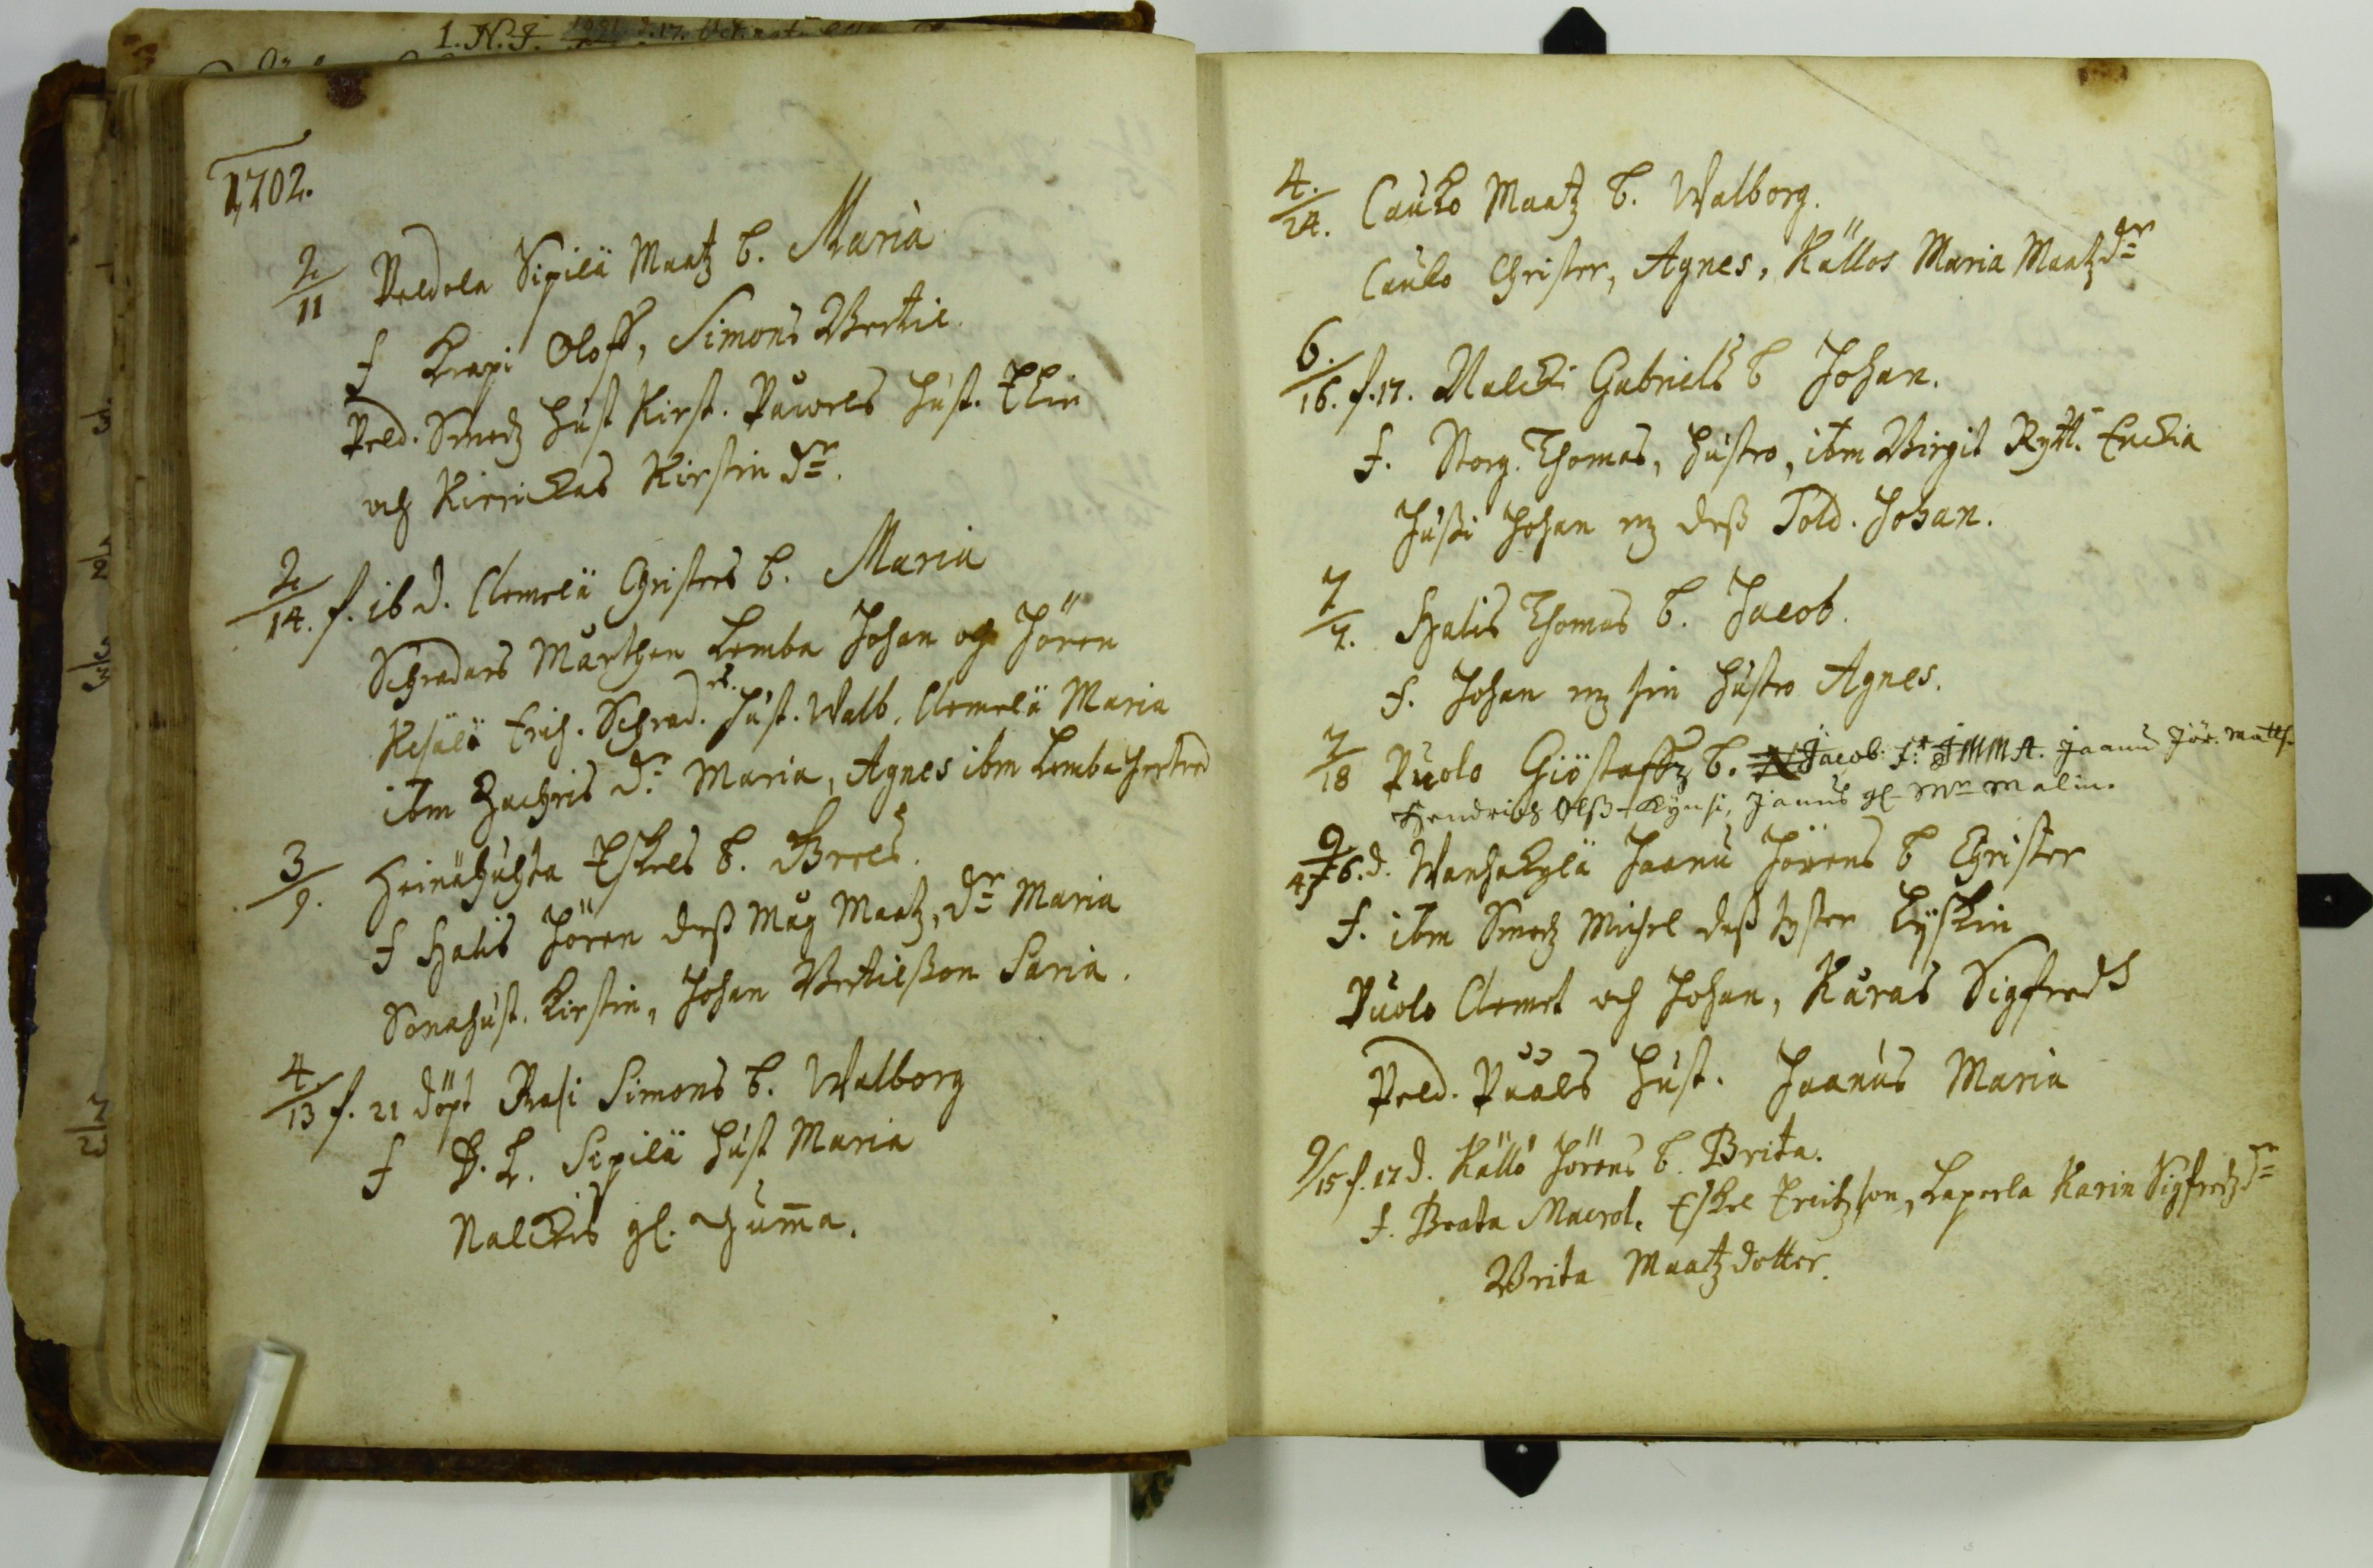 1702.
2/11 Peldola Sipilä Maatz b. Maria
f Krapi Oloff, Simons Bertil.
Peld. Smedz Hust Kirst. Påwels hust. Elin
och Kirrickas Kirstin dr.
2/14. f. 16 d. Clemelä Christers b. Maria
Schradars Mårthen Lemba Johan och Jören
Kesälä Erich. Schrad. rs. Hust. Walb. Clemelä Maria
ibm Zachris dr Maria, Agnes ibm Lemba
3/9. Heinähuhta Eskels b.
f Halis Jören dess måg Maatz, dr Maria
Sonahust. Kirstin, Johan Bertilsson Saria.
4/13 f. 21 döpt Rasi Simons b. Walborg
f B. L. Sipilä hust Maria
Nalckis gl. gumma.
4./24. Cauko Maatz b. Walborg.
Cauko Christer, Agnes, Källos Maria Maatz dr
6./16. f. 17. Nalcki Gabriels b Johan.
f. Storg. Thomas, hustro, ibm Birgit Rytt. Enckia
Hussi Johan m dess Sold. Johan.
7/7. Halis Thomas b. Jacob.
f. Johan m sin hustro Agnes.
7/18 Puolo Giöstaffz b. N Jacob. f. JMMA. Jaanu Jör. Matts.
Hendrich Olss. Kynsi, Janus gl. Mr Malin.
9/4 f 6. d. Wanhakylä Jaanu Jörens b Christer
f. ibm Smedz Michel dess syster Lyskin
Puolo Clemet och Johan, Karas Sigfreds
Peld. Påals hust. Jaanus Maria
9/15 f. 17 d. Källo Jörens b. Brita.
f. Beata Macrol. Eskel Erichsson, Laperla Karin Sigfredz dr
Brita Maatz dotter.